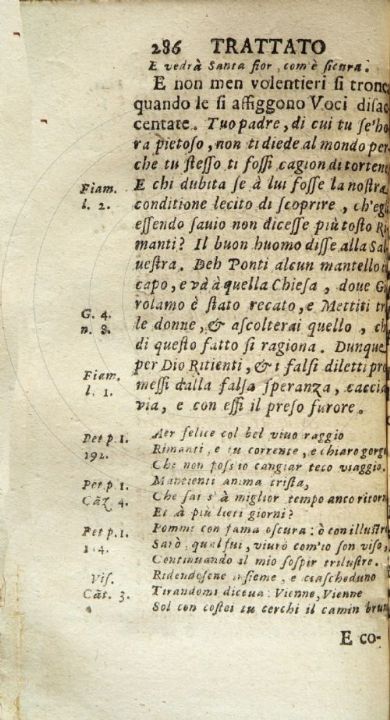 286 TRATTATO
E vedrà Santa fior, com'è sicura.
E non men volentieri si tronc
quando le si affiggono Voci disac
centate. Tuo padre, di cui tu se' ho
ra pietoso, non ti diede al mondo per
che tu stesso ti fossi cagion di tortene
Fiam. E chi dubita se à lui fosse la nostra
l. 2. conditione lecito di scoprire, ch'egl
essendo sauio non dicesse più tosto Ri
manti? Il buon huomo disse alla Sal
uestra. Deh Ponti alcun mantello i
capo, e và à quella Chiesa, doue G
G. 4. rolamo è stato recato, e Mettiti tr
n. 8. le donne, & ascolterai quello, ch
di questo fatto si ragiona. Dunque
per Dio Ritienti, & i falsi diletti pro
Fiam. messi dalla falsa speranza, caccia
l. 1. via, e con essi il preso furore.
Pet p. 1. Aer felice col bel viuo raggio
192. Rimanti, e tu corrente, e chiaro gorgo
Che non poss'io cangiar teco viaggio.
Pet p. 1. Mantienti anima trista,
Cāz. 4. Che sai s'à miglior tempo anco ritorn
Et à più lieti giorni?
Pet p. 1. Pommi con fama oscura: ò con illustre
Sarò, qual fui, viurò com'io son viso,
Continuando il mio sospir trilustre.
Vis. Ridendosene insieme, e ciascheduno
Cāt. 3. Tirandomi diceua: Vienne, Vienne
Sol con costoi tu cerchi il camin brun
E co-